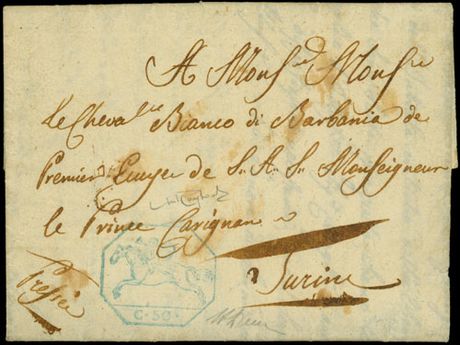 A Mons.r Mons.r
le Cheval.re Bianco di Barbania de
Premier Ecuyer de S. A. S. Monseigneur
le Prince Carignan
Turin
Pressée
C. 50